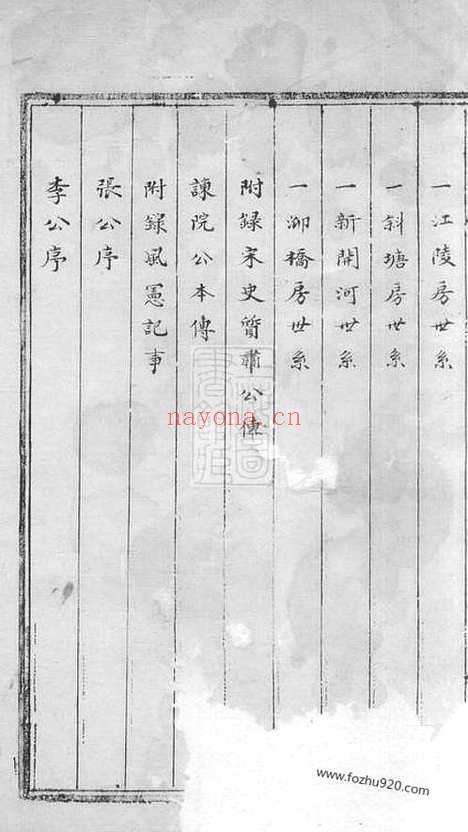 一江陵房世系
一斜塘房世系
一新開河世系
一泖橋房世系
附録宋史質肅公傳
諫院公本傳
附録風憲記事
張公序
李公序
nayona.cn
www.fozhu920.com